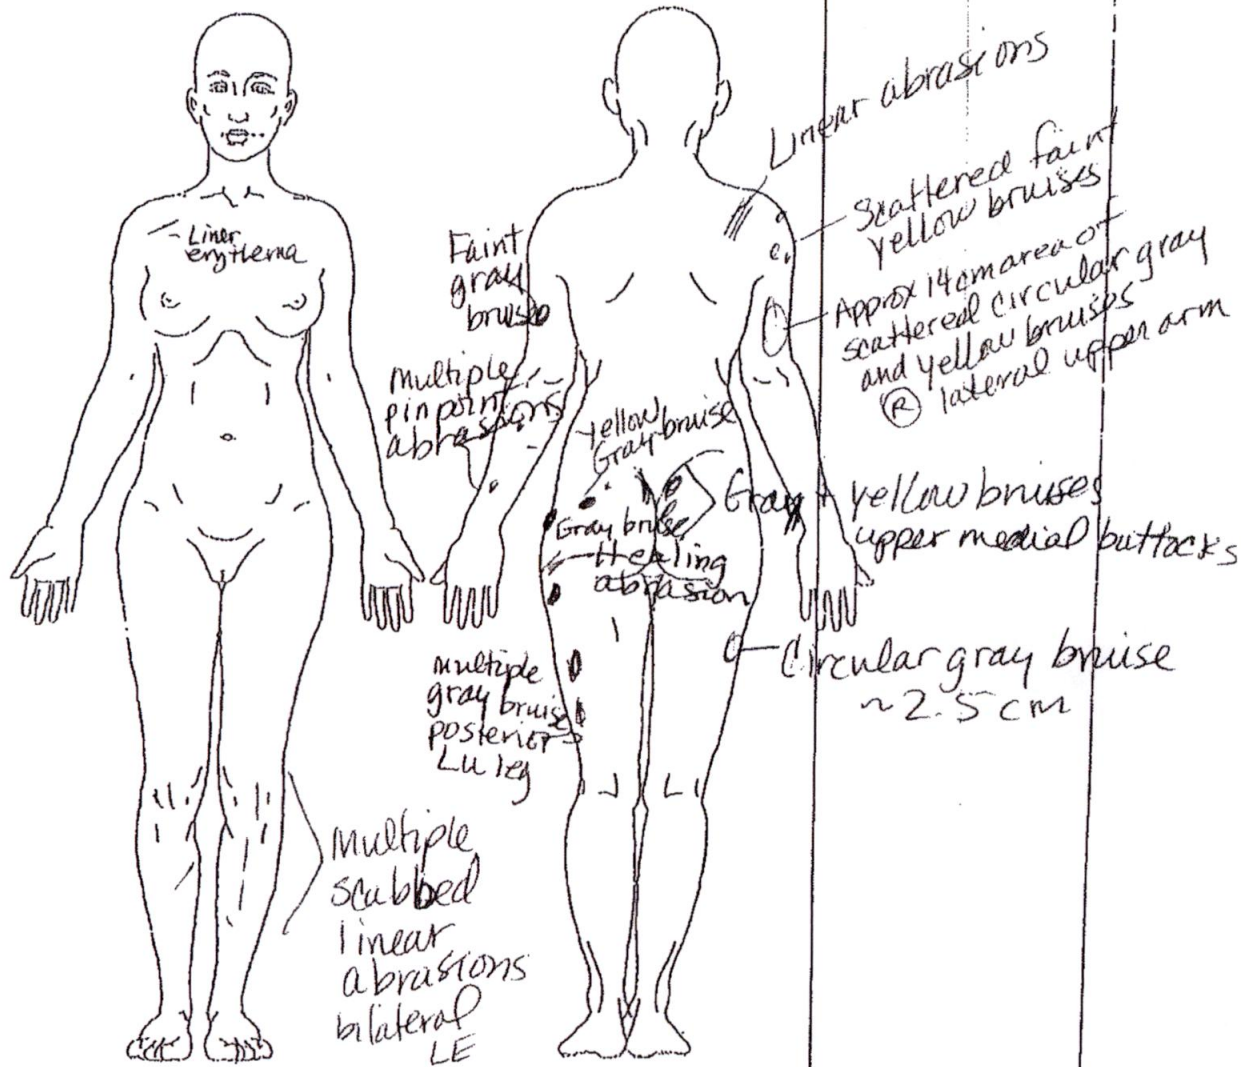 - Liner
erythema
Faint
gray
bruise
Multiple
pinpoint
abrasions
Linear abrasions
Scattered faint
yellow bruises
Approx 14cm area of
scattered circular gray
and yellow bruises
Ⓡ lateral upper arm
yellow
Gray bruise
Gray + yellow bruises
upper medial buttocks
Gray bruise
Healing
abrasion
Circular gray bruise
~2.5 cm
multiple
gray bruises
posterior
Lu leg
Multiple
scabbed
linear
abrasions
bilateral
LE